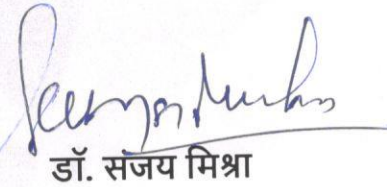 डॉ. संजय मिश्रा